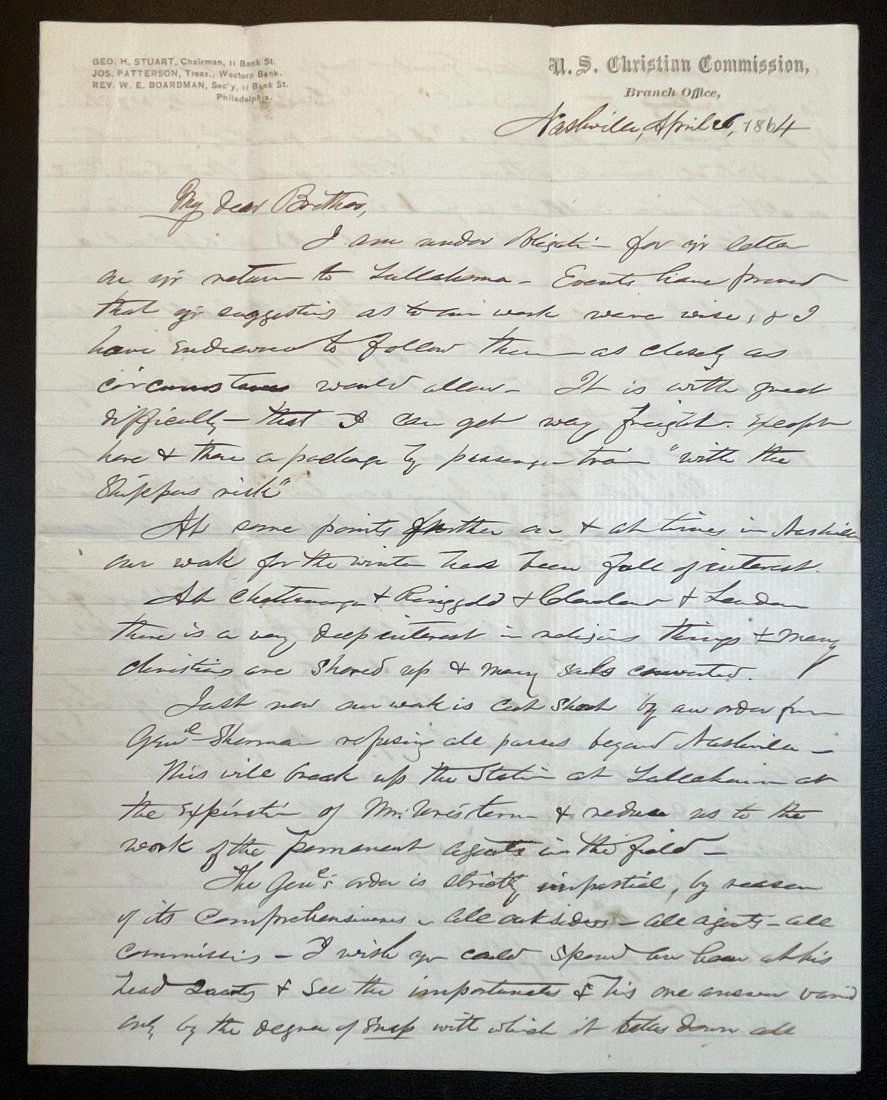 GEO. H. STUART, Chairman, 11 Bank St.
JOS. PATTERSON, Treas., Western Bank.
REV. W. E. BOARDMAN, Sec'y, 11 Bank St.
Philadelphia.
U. S. Christian Commission,
Branch Office,
Nashville, April 26, 1864
My dear Brother,
I am under obligatn for yr letter
on yr return to Tullahoma - Events have proved
that yr suggestins as to our work were wise, & I
have endeavored to follow them as closely as
circumstances would allow - It is with great
difficulty - that I can get way freight. Except
here & there a package by passenger train "with the
Shippers risk"
At some points further on & at times in Nashville
our work for the winter has been full of interest.
At Chattanooga & Ringgold & Cleveland & Loudon
there is a very deep interest in religious things & many
Christians are shored up & many souls converted.
Just now our work is cut short by an order from
Genl Sherman refusing all passes beyond Nashville -
This will break up the Station at Tullahoma at
the expiratin of Mr. term & reduce us to the
work of the permanent agents in the field -
The Genl's order is strictly impartial, by reason
of its comprehensiveness - all outsiders - all agents - all
commissis - I wish you could spend an hour at his
head & see the importunate & his one answer varied
only by the degree of snap with which it takes down all